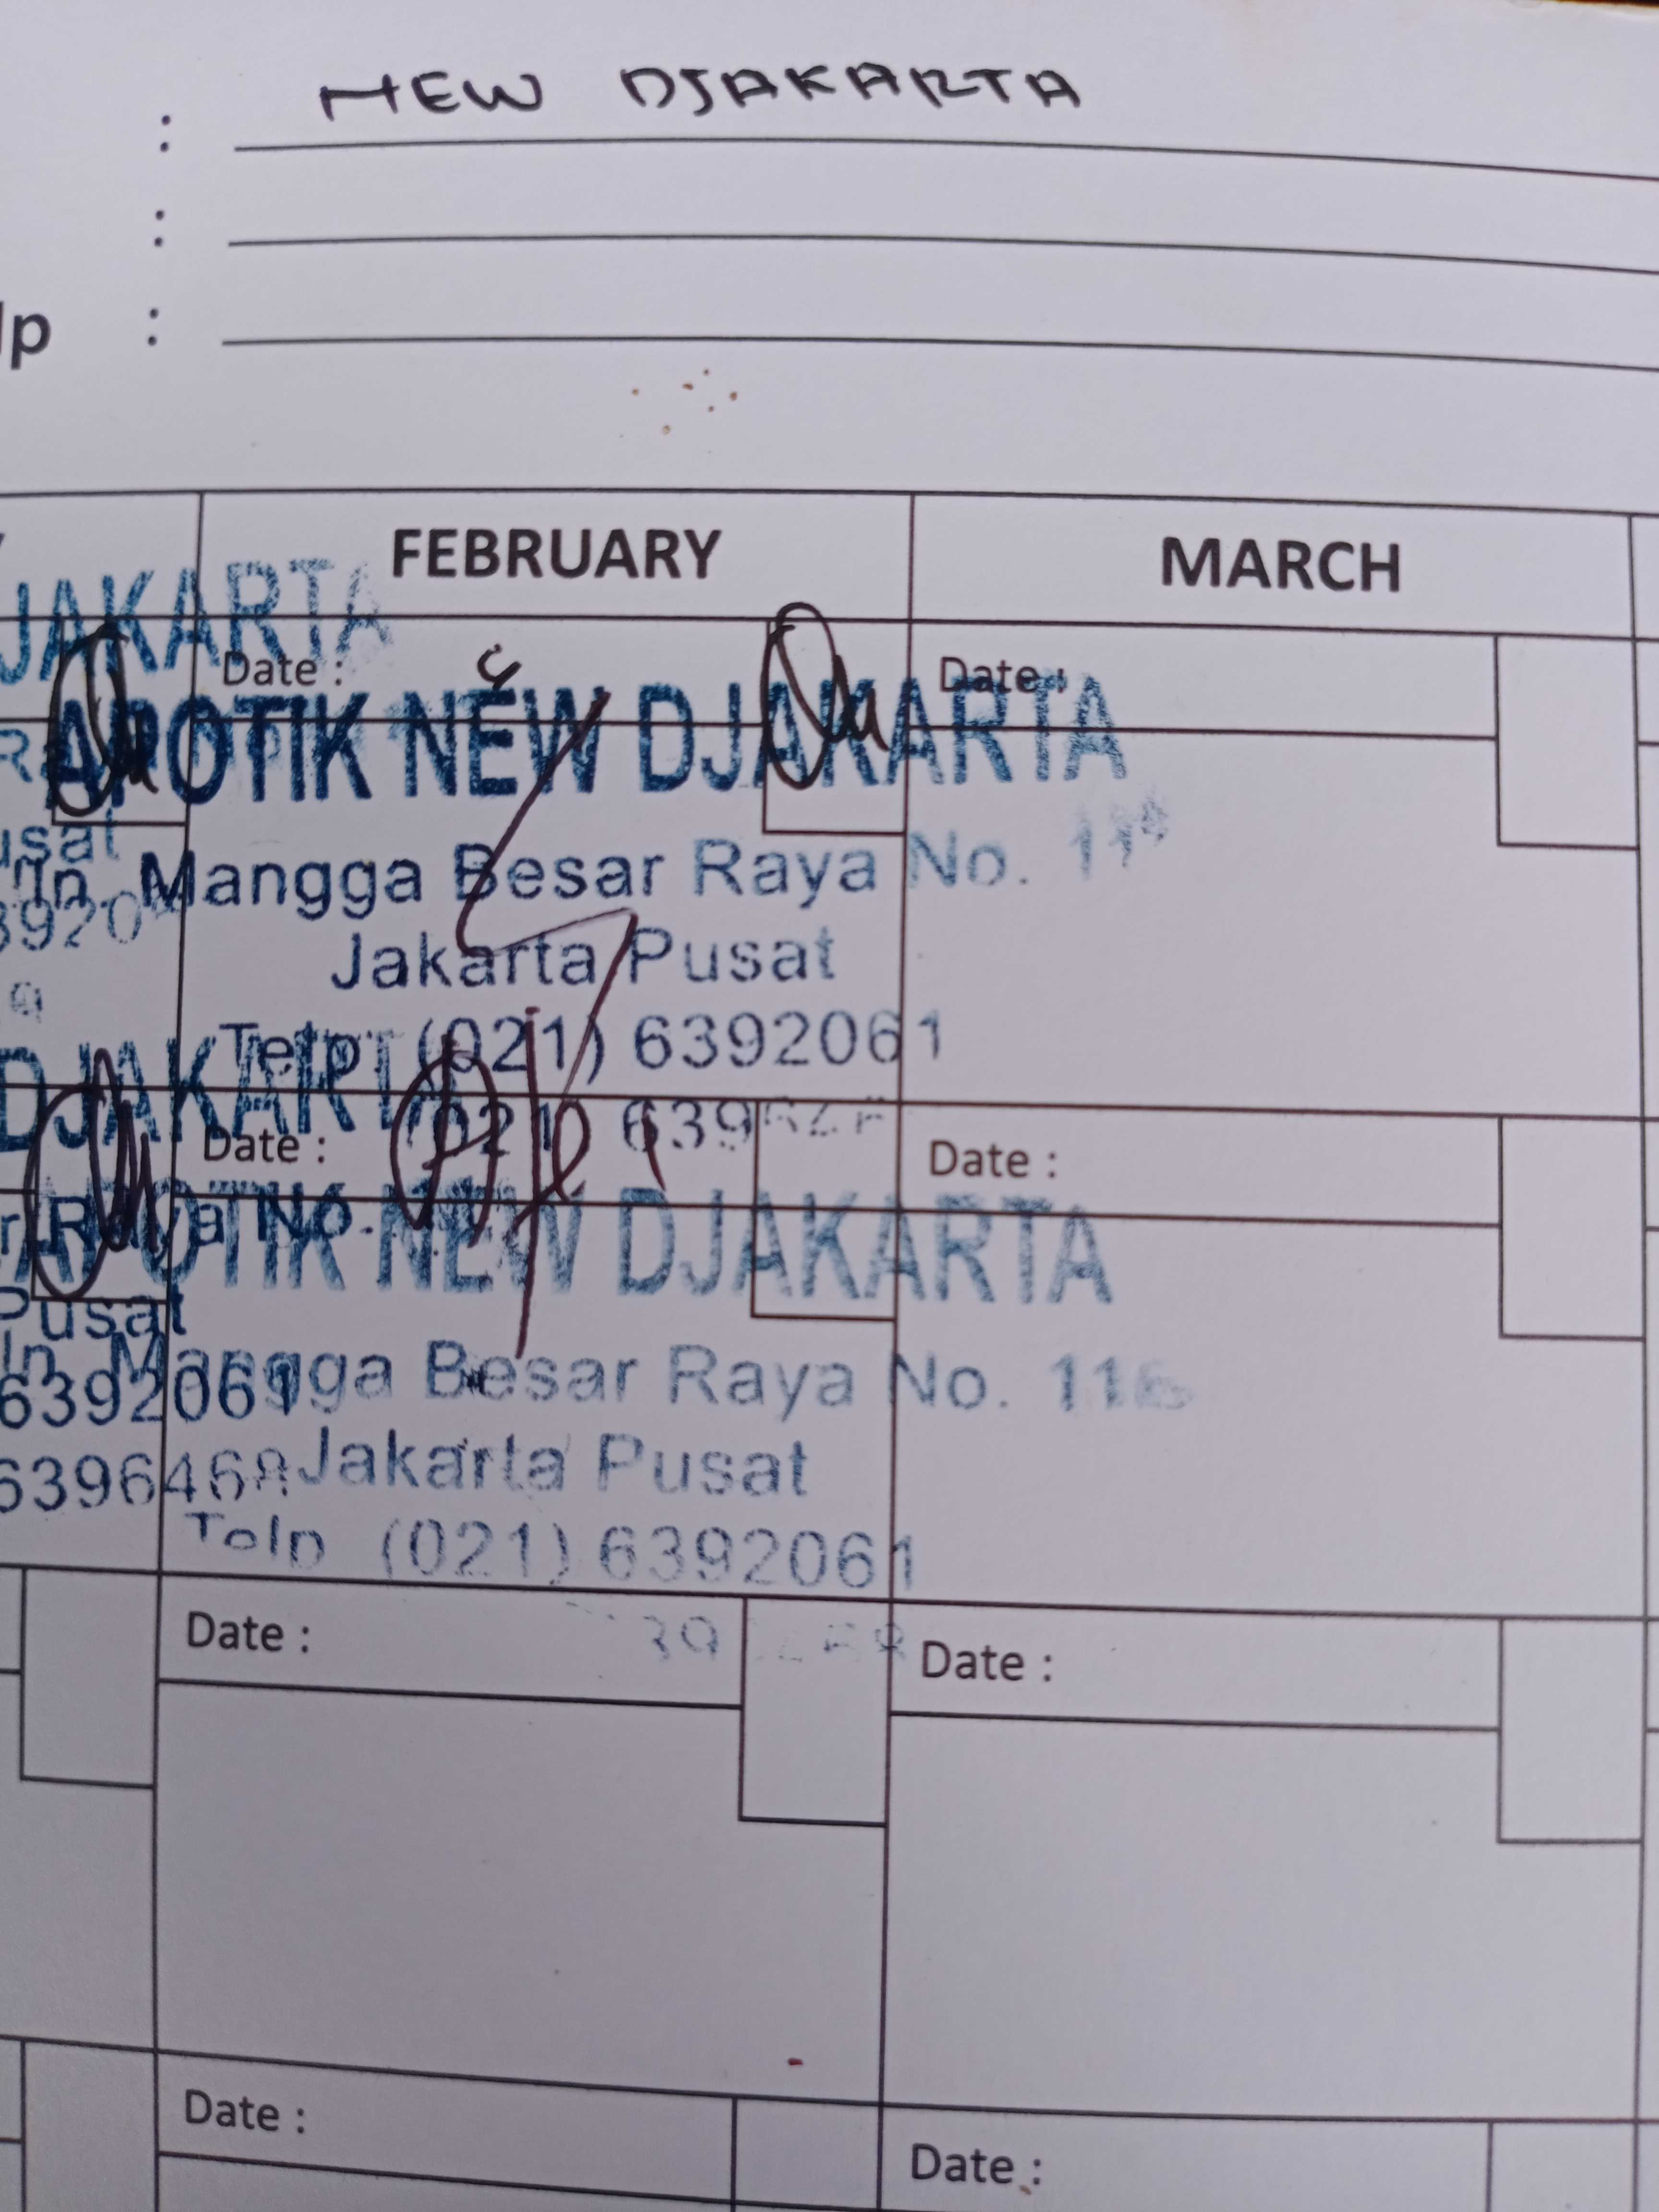 NEW DJAKARTA
:
:
lp :
FEBRUARY MARCH
JAKARTA
Date : Date :
APOTIK NEW DJAKARTA
usat
Jln. Mangga Besar Raya No.
3920
Jakarta Pusat
Telp (021) 6392061
DJAKARTA
021 639
Date : Date :
Raya No.
APOTIK NEW DJAKARTA
Pusat
Jln. Mangga Besar Raya No.
6392061
Jakarta Pusat
639646
Telp (021) 6392061
Date : 39 Date :
Date :
Date :